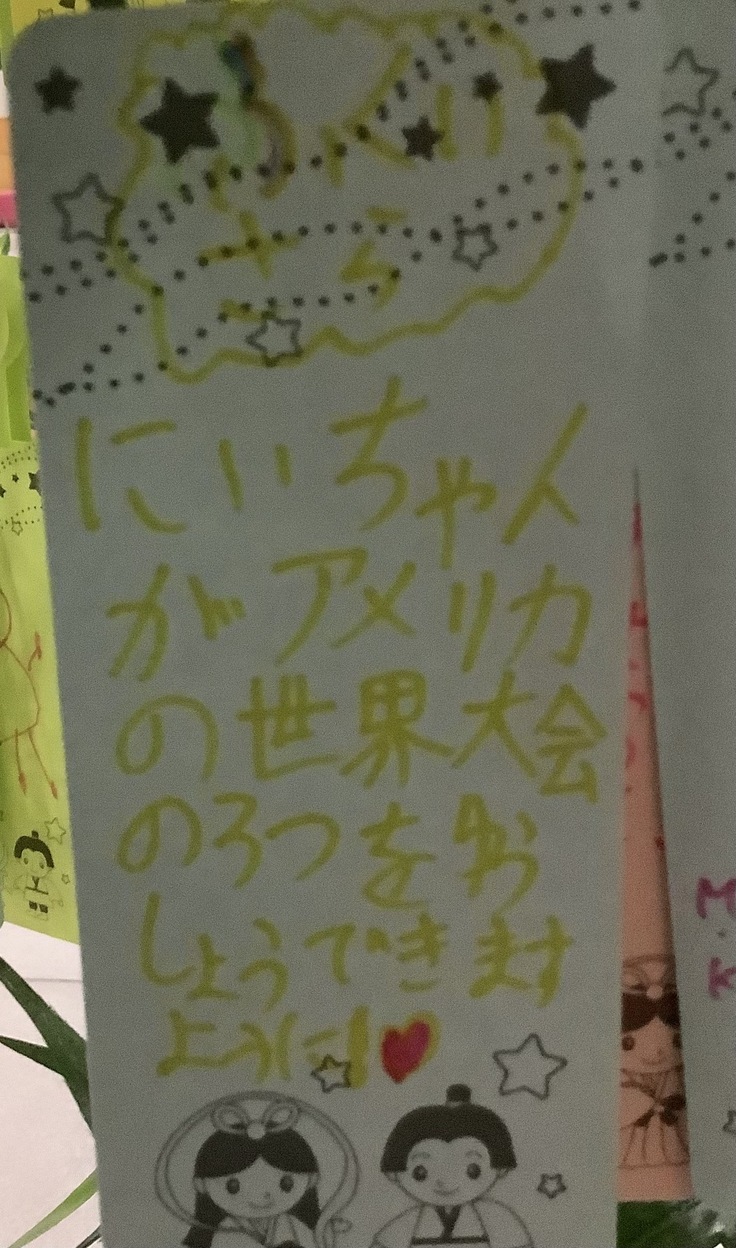 にいちゃん
がアメリカ
の世界大会
の3つをゆう
しょうできます
ように!
M
K